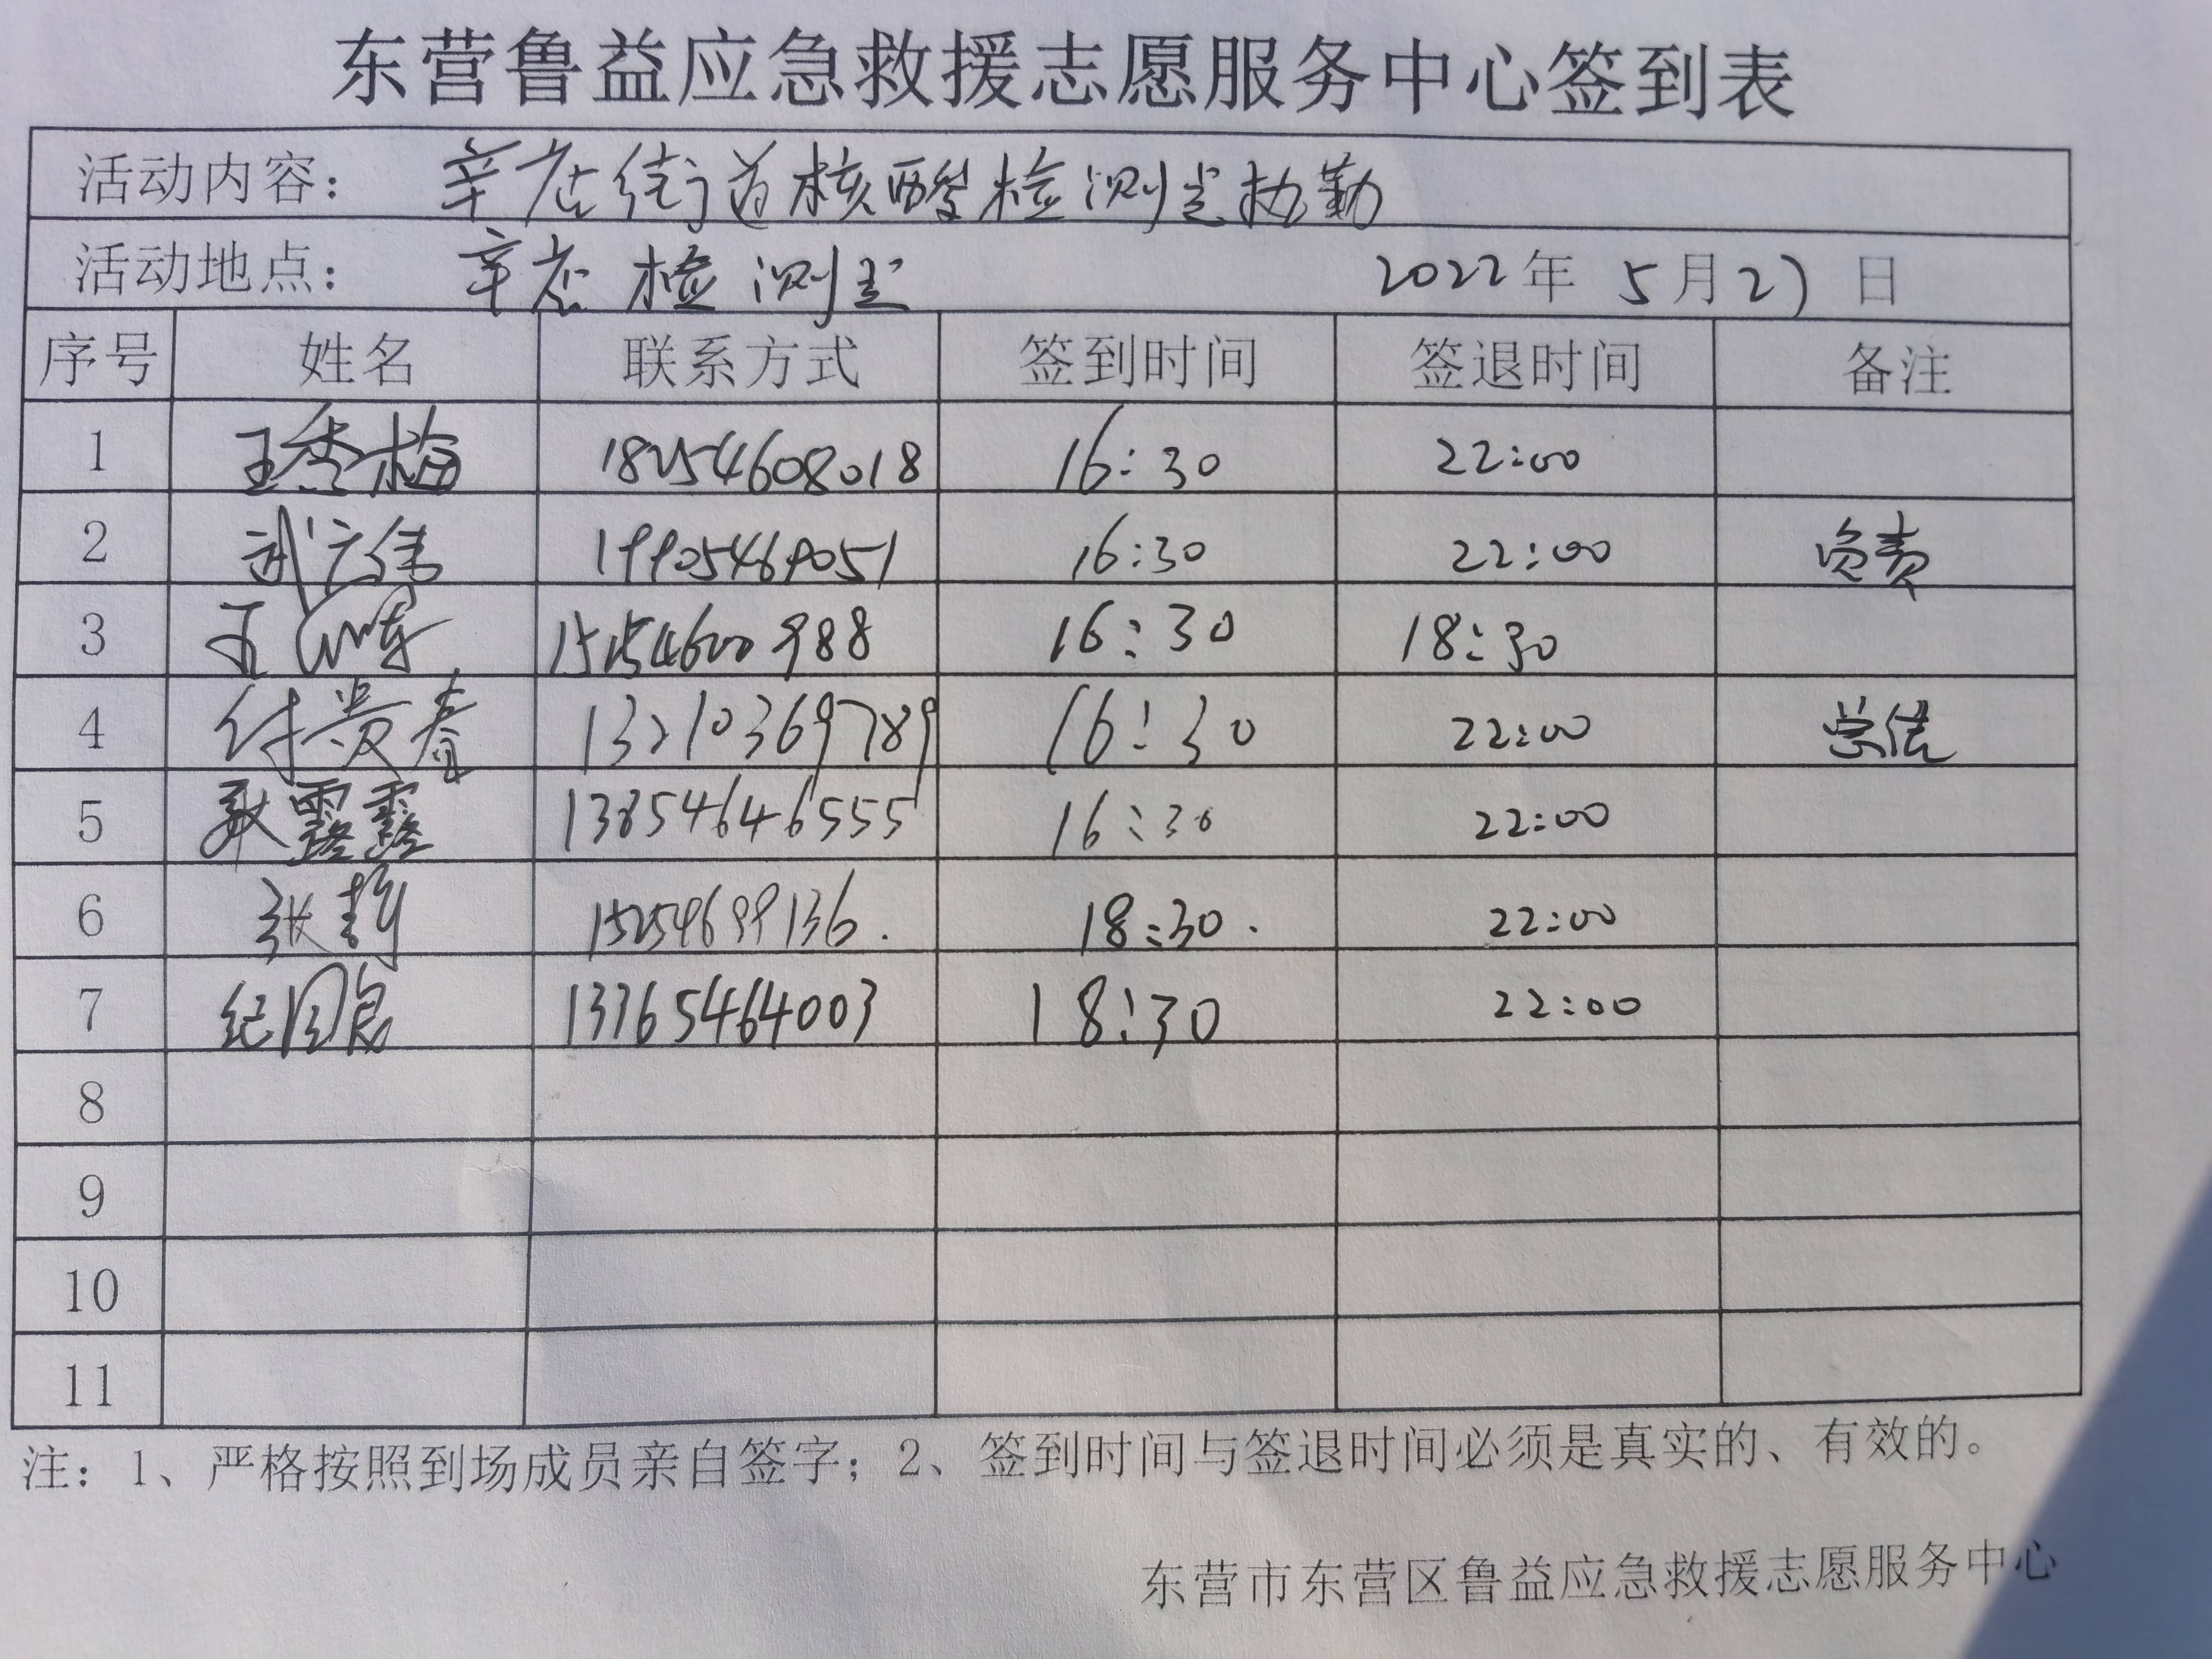 东营鲁益应急救援志愿服务中心签到表
活动内容： 辛店街道核酸检测点执勤
活动地点： 辛店检测点 2022年 5月27日
序号 姓名 联系方式 签到时间 签退时间 备注
1 王秀梅 18254608018 16:30 22:00
2 武广伟 19905469051 16:30 22:00 负责
3 王 15154600988 16:30 18:30
4 付贵春 13210369789 16:30 22:00
5 耿露露 13854646555 16:30 22:00
6 张莉 15254699136. 18:30. 22:00
7 纪国良 13365464003 18:30 22:00
8
9
10
11
注：1、严格按照到场成员亲自签字；2、签到时间与签退时间必须是真实的、有效的。
东营市东营区鲁益应急救援志愿服务中心